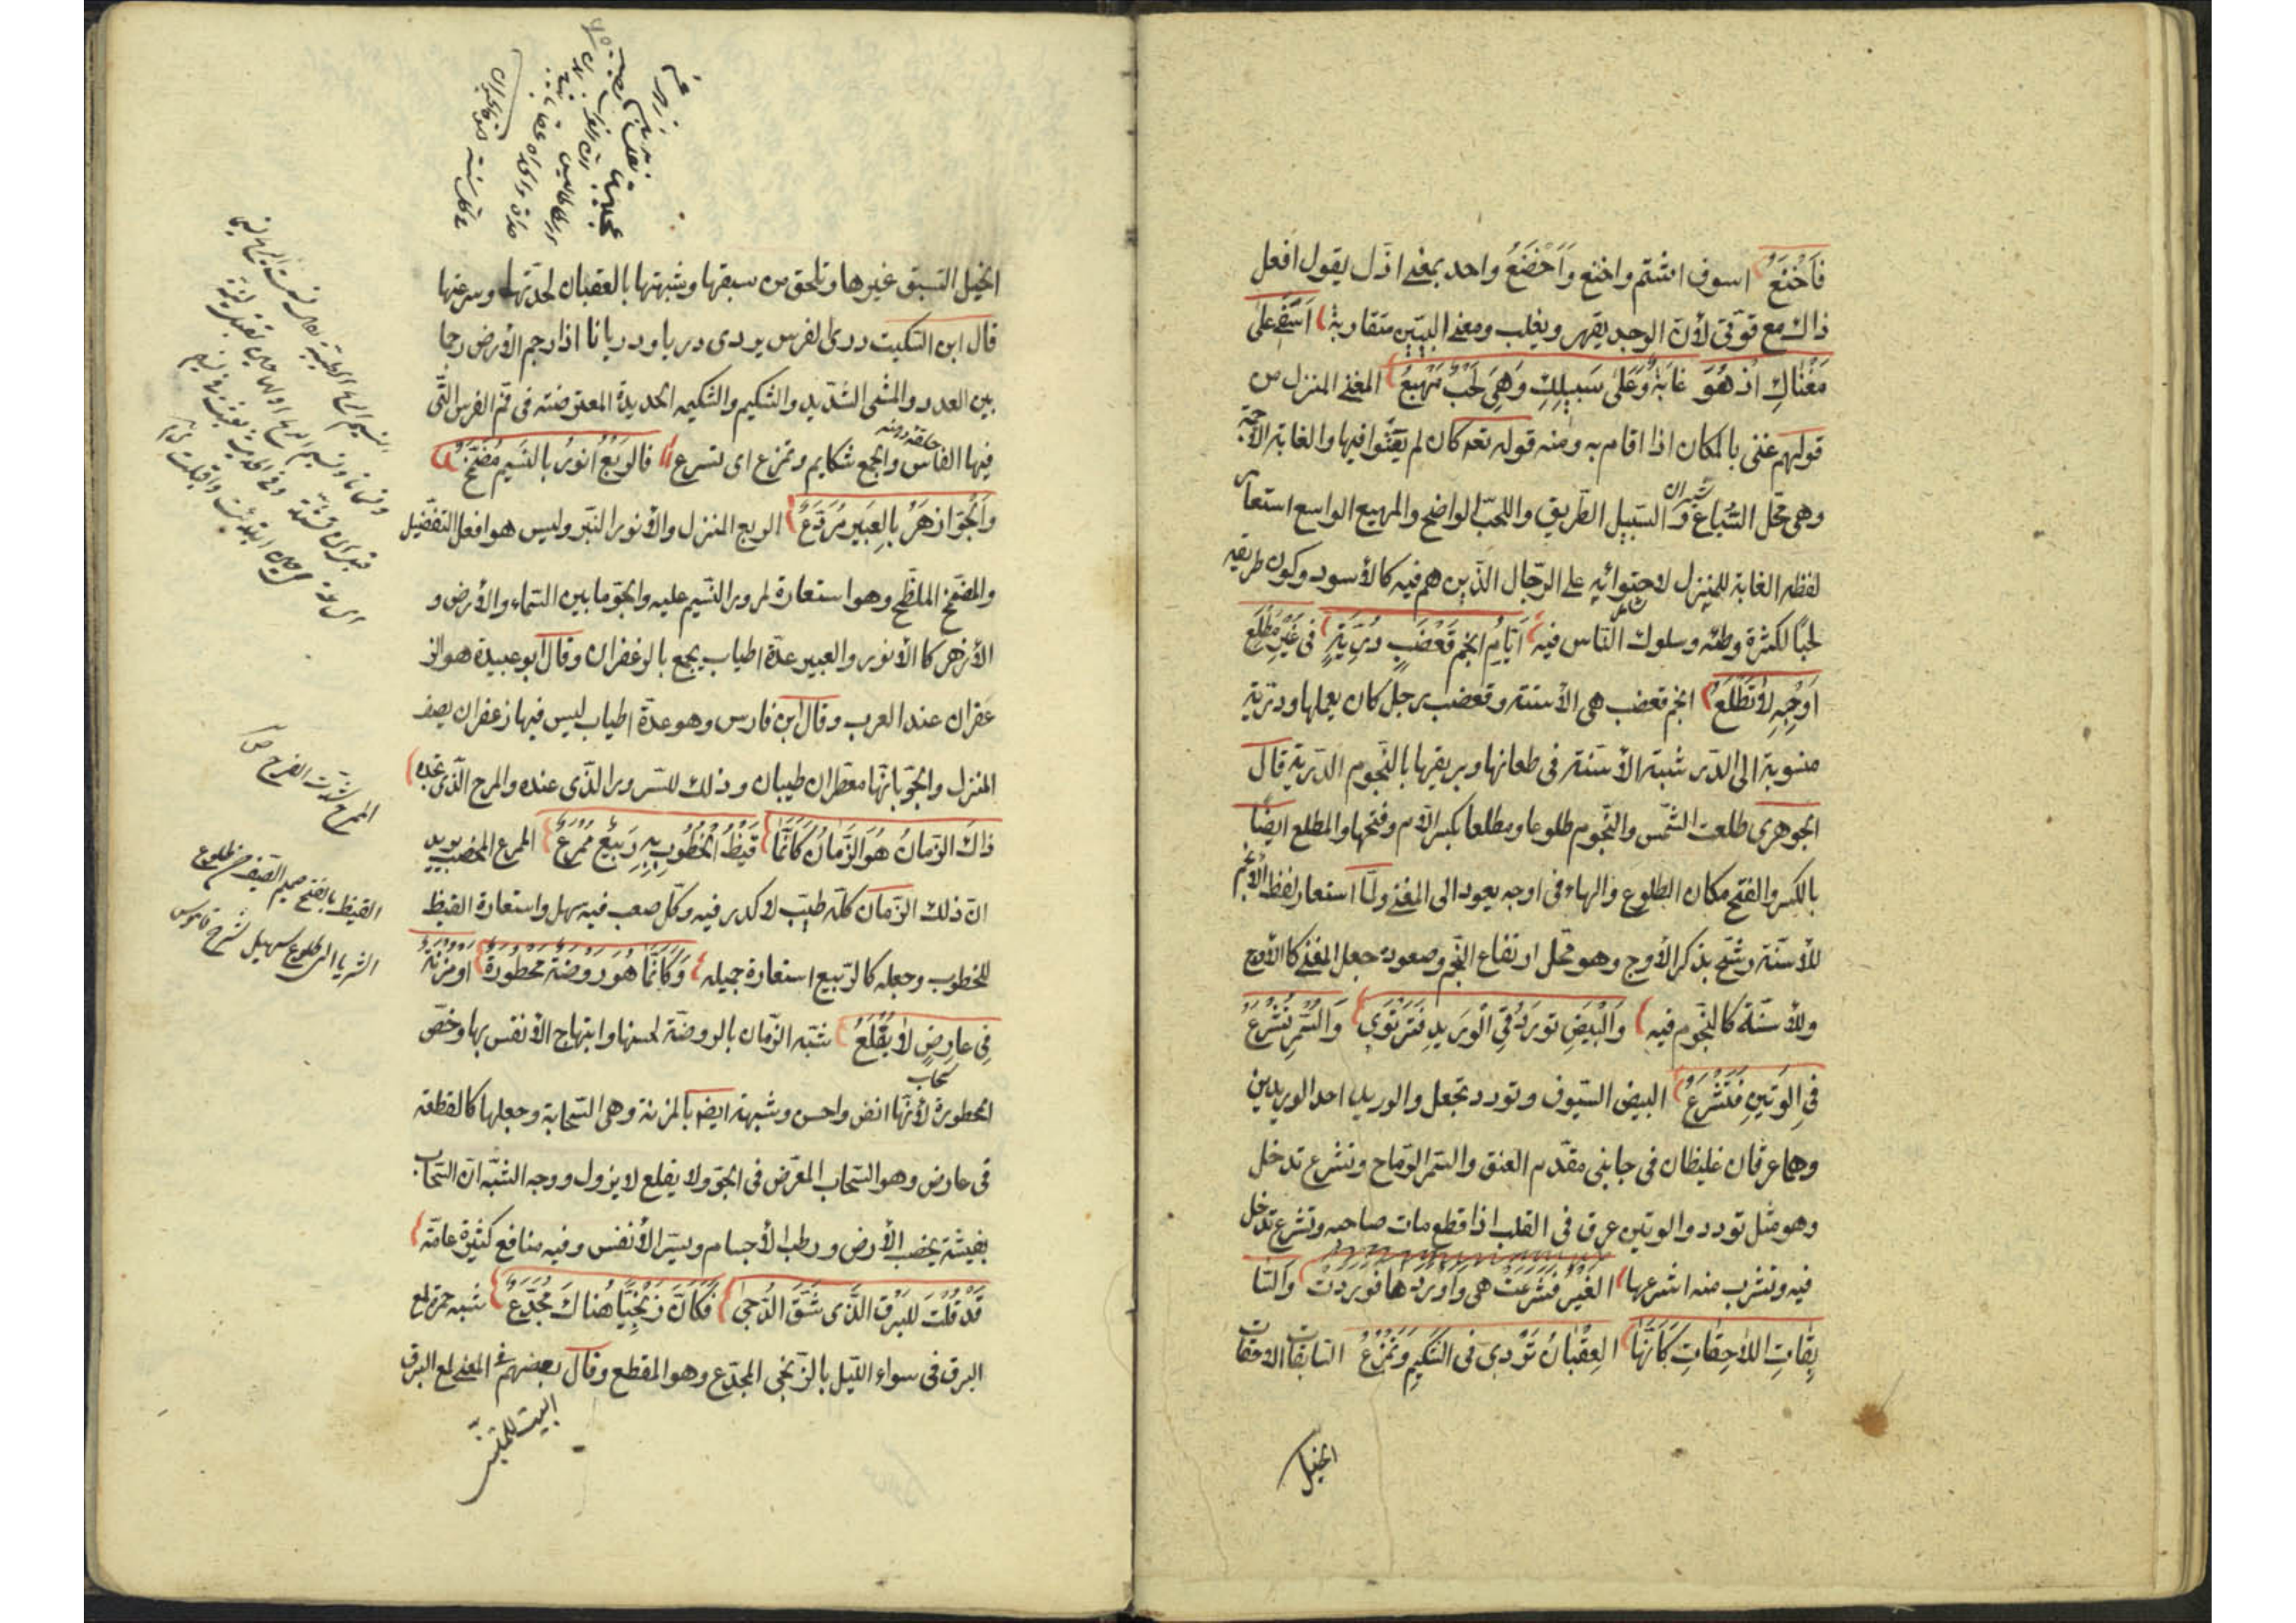 فَاَخْنَعُ اسوف اشتم واخنع وَاَخْضَعُ واحد بمعنى اذل يقول افعل
ذاك مع قوتى لأن الوجد يقهر ويغلب ومعنى البيتين متقاربة اَسَفى عَلى
مَغْناكِ اذ هُوَ غابَةٌ وَعَلى سَبيلِكِ وَهىَ لَحْبٌ مَهْيَعُ المغنى المنزل من
قولهم غنى بالمكان اذا اقام به ومنه قوله تعه كان لم يغنوا فيها والغابة الأجمة
وهى محل السباع والسبيل الطريق واللحب الواضح والمهيع الواسع استعار
لفظه الغابة للمنزل لاحتوائه على الرجال الذين هم فيه كالأسود وكون طريقه
لحبا لكثرة وطئه وسلوك الناس فيه اَيّامُ انجم قَعْضَبٍ دُرِّيَّةٍ فى غَيْرِ مَطْلَعِ
اَوْجِهِ لا تَطْلُعُ انجم قعضب هى الأسنة وقعضب رجل كان يعملها ودرية
منسوبة الى الدر شبه الأسنة فى طعانها وبريقها بالنجوم الدرية قال
الجوهرى طلعت الشمس والنجوم طلوعا ومطلعا بكسر اللام وفتحها والمطلع ايضا
بالكسر والفتح مكان الطلوع والهاء فى اوجه يعود الى المغنى ولما استعار لفظ الأنجم
للأسنة رشح بذكر الأوج وهو محل ارتفاع النجم وصعوده جعل المغنى كالأوج
والأسنة كالنجوم فيه وَالْبيضِ تورَدُ فِى الْوَريدِ فَتَرْتَوى وَالسُّمْرِ تُشْرَعُ
فِى الوَتينِ فَتَشْرَعُ البيض السيوف وتورد تجعل والوريد احد الوريدين
وهما عرقان غليظان فى جانبى مقدم العنق والسمر الرماح وتشرع تدخل
وهو مثل تورد والوتين عرق فى القلب اذا قطع مات صاحبه وتشرع تدخل
فيه وتشرب منه اشرعها الغير فشرعت هى واوردها فوردت وَالسّا
بِقاتِ اللاّحِقاتِ كَاَنَّها العِقْبانُ تَرْدى فى الشَكيمِ وَتَمْزَعُ السابقات اللاحقات
الخيل
الخيل التسبق غيرها وتلحق من سبقها وشبهتها بالعقبان لحدتها وسرعتها
قال ابن السكيت ردى الفرس يردى رديا ورديانا اذا رجم الأرض رجما
بين العدو والمشى الشديد والشكيم والشكيمه الحديدة المعترضته فى فم الفرس التى
فيها الفاس والجمع شكايم وتمزع اى تسرع فالرَبْعُ اَنوَرُ بالنَسيمِ مُضَمَّخٌ
وَالْجَوّ ازهَرُ بالعَبيرِ مُرَدَّعُ الربع المنزل والأنور النير وليس هو افعل التفضيل
والمضمخ الملطخ وهو استعارة لمرور النسيم عليه والجو ما بين السماء والأرض و
الأزهر كالأنور والعبير عدة اطياب يجمع بالزعفران وقال ابو عبيدة هو الز
عفران عند العرب وقال ابن فارس وهو عدة اطياب ليس فيها زعفران يصف
المنزل والجو بانها معطران طيبان وذلك للسرور الذى عنده والمرح الذى نجده
ذاكَ الزّمانُ هُوَ الزَّمانُ كَاَنَّما قَيْظُ الْخُطُوبِ بِهِ رَبيعٌ مُمْرِعُ الممرع المخصب يريد
ان ذلك الزمان كله طيب لا كدر فيه وكل صعب فيه سهل واستعارة القيظ
للخطوب وجعله كالربيع استعارة جميله وَكَاَنَّما هُوَ رَوْضَةٌ مَمْطُورَةٌ اومُزْنَةٌ
فِى عارِضٍ لا يُقْلَعُ شبه الزمان بالروضة لحسنها وابتهاج الأنفس بها وخص
سحاب
الممطورة لأنها انضر واحسن وشبهته ايضا بالمزنة وهى السحابة وجعلها كالقطعه
فى عارض وهو السحاب المعرض فى الجو ولا يقلع لا يزول ووجه الشبه ان السحاب
بغيثه يخصب الأرض ورطب الأجسام ويسر الأنفس وفيه منافع كثيرة عامة
قَدْ قُلْتُ للبَرْقِ الَّذى شَقَّ الدُّجى فَكَاَنَّ زِنْجِيّاً هُناكَ مُجَدَّعُ شبه حمرة لمع
البرق فى سواد الليل بالزنجى المجدع وهو المقطع وقال بعضهم فى المعنى لمع البرق
القيظ بالفتح صميم الصيف من طلوع
الثريا الى طلوع سهيل شرح قاموس
المرح شدت الفرح ص